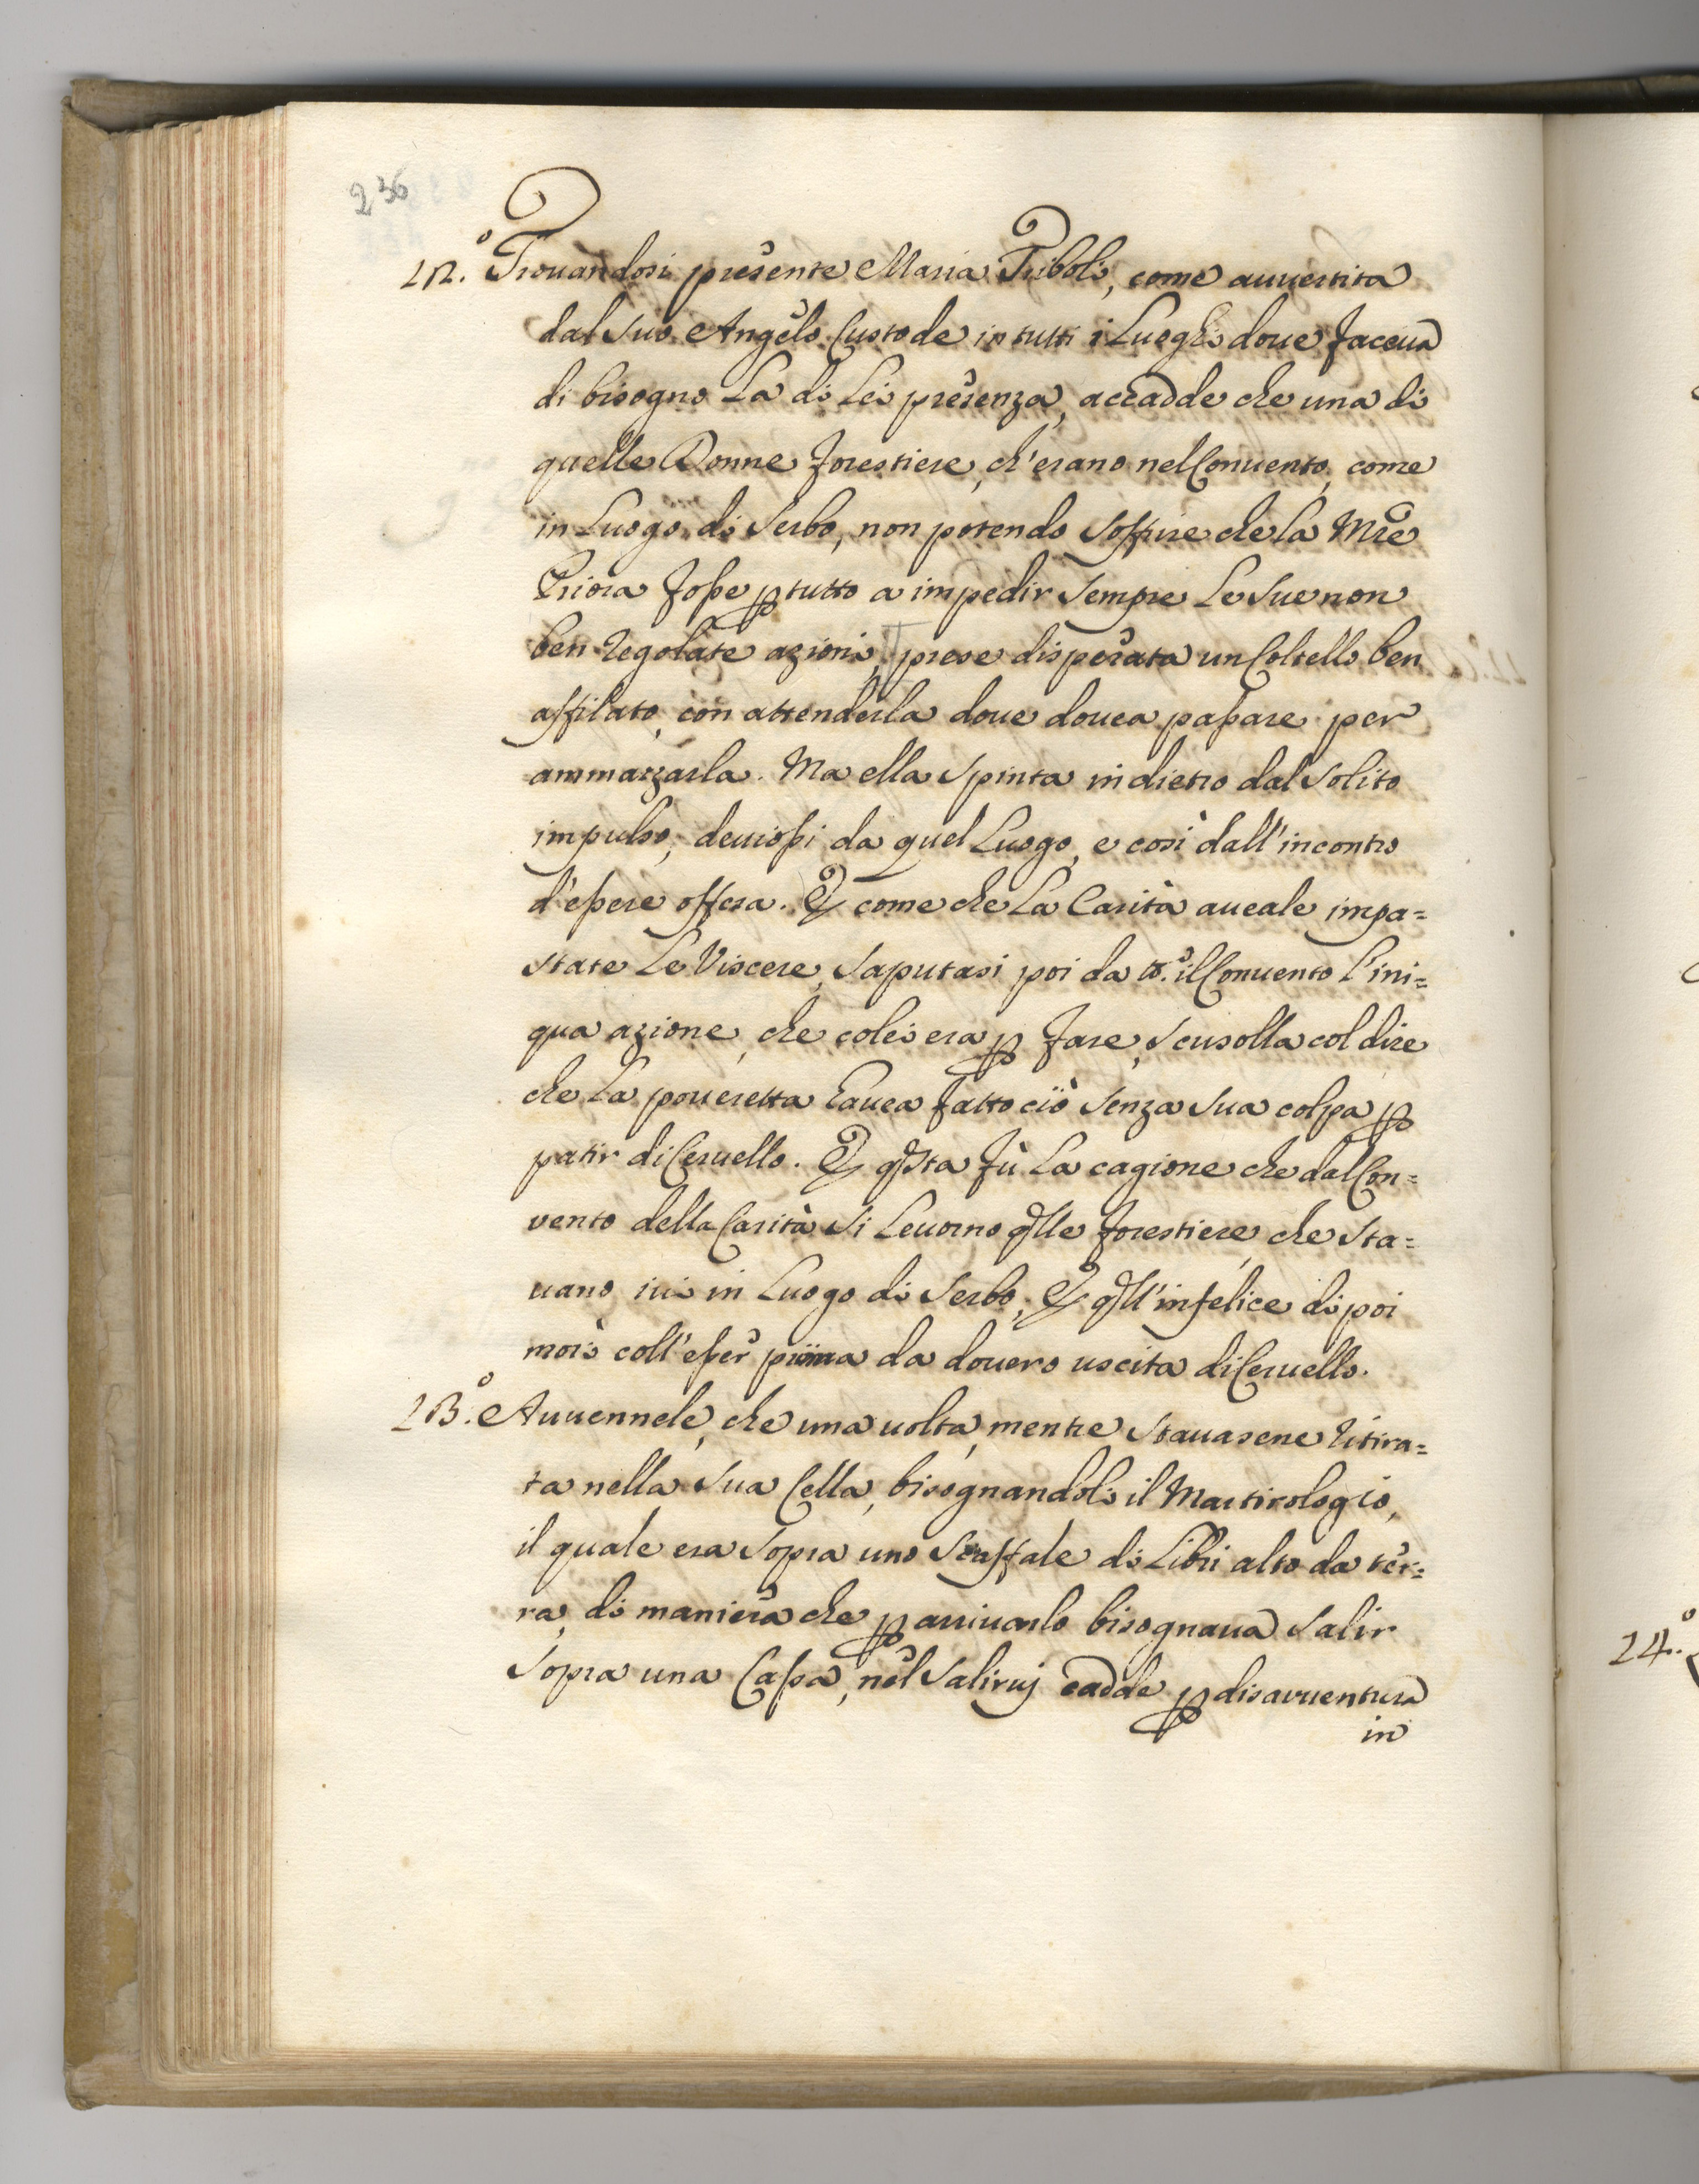 236
12.º Trouandosi presente Maria Triboli, come auuertita
dal suo Angelo Custode in tutti i Luoghi doue faceua
di bisogno La di Lei presenza, accadde che una di
quelle Donne forestiere, ch'erano nel Conuento, come
in Luogo di Serbo, non potendo soffrire che la Mre
Priora fosse p tutto a impedir sempre Le sue non
ben regolate azioni, prese disperata un Coltello ben
affilato, con attenderla doue douea passare per
ammazzarla. Ma ella spinta indietro dal solito
impulso, deuiossi da quel Luogo, e così dall'incontro
d'essere offesa. E come che La Carità aueale impa=
state Le Viscere, saputasi poi da to. il Conuento l'ini=
qua azione, che colei era p fare, scusolla col dire
che La poueretta hauea fatto ciò senza sua colpa p
patir di Ceruello. E qsta fù La cagione che dal Con=
vento della Carità si Leuorno qlle forestiere, che sta=
uano iui in Luogo di Serbo, E qll'infelice di poi
morì coll'esser prima da douero uscita di Ceruello.
13.º Auuennele, che una uolta, mentre stauasene ritira=
ta nella sua Cella, bisognandoli il Martirologio,
il quale era sopra uno scaffale di Libri alto da ter=
ra, di maniera che p arriuarlo bisognaua salir
sopra una Cassa, nel salirui cadde p disauuentura
in
14.º